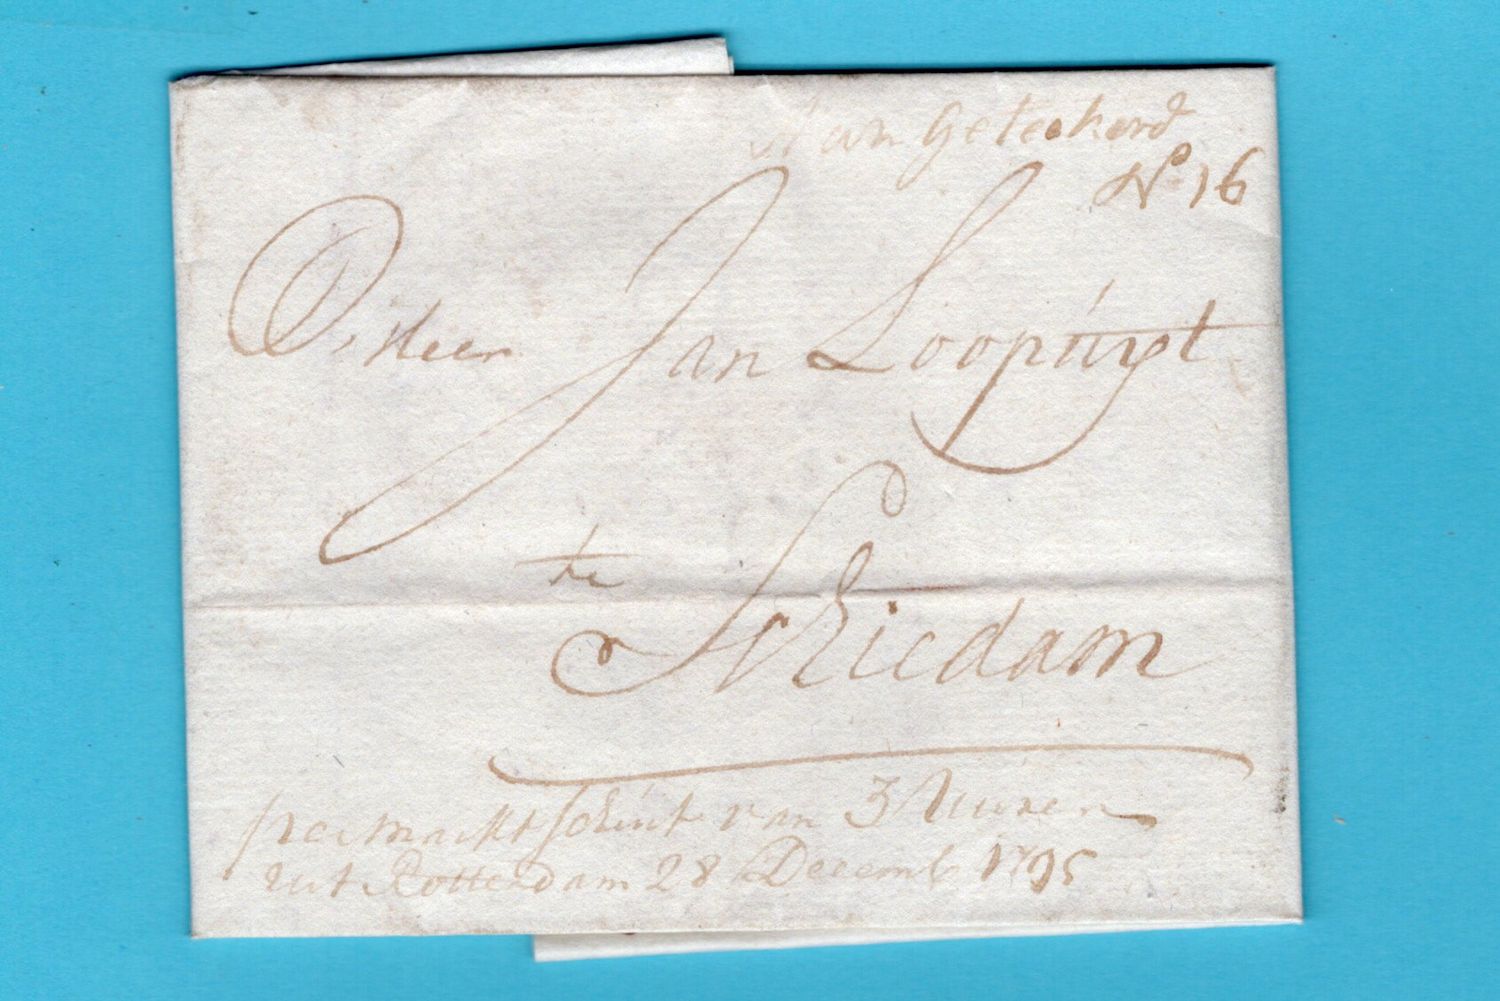 Aan geteekend
No 16
D'Heer Jan Loopúyt
te
Schiedam
per marktschúit van 3 Uúren
uit Rotterdam 28 Decemb 1795